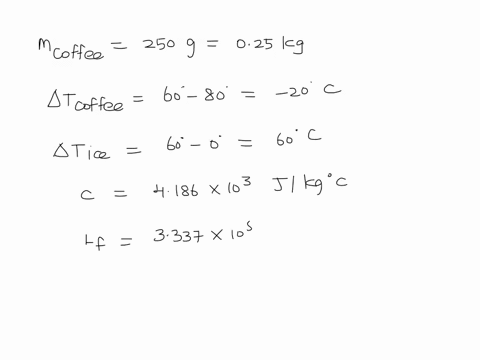 m coffee = 250 g = 0.25 kg
ΔT coffee = 60° - 80° = -20° C
ΔT ice = 60° - 0° = 60° C
c = 4.186 × 10³ J/kg°C
Lf = 3.337 × 10⁵